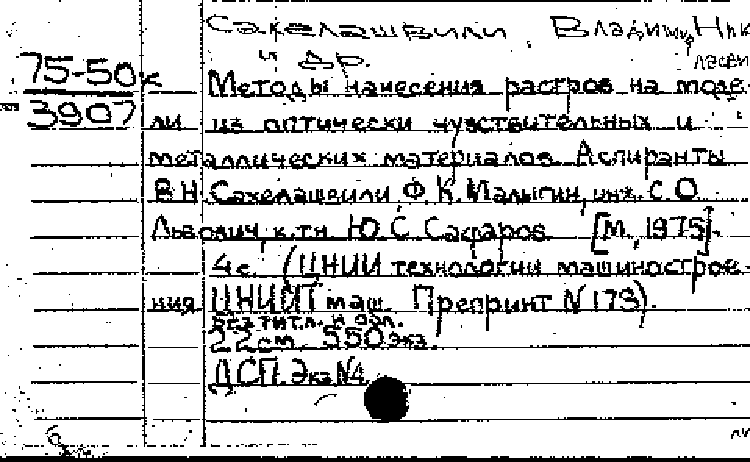 Сакелашвили, Владим. Ник
и др.
75-50к
3907
Методы нанесения растров на моде-
ли из оптически чувствительных и
металлических материалов. Аспиранты
В.Н. Сакелашвили, Ф.К. Малыгин, инж. С.О.
Львович, к.т.н. Ю.С. Сафаров. [М., 1975].
4 с. (ЦНИИ технологии машинострое-
ния ЦНИИТмаш. Препринт N 173).
Без тит. л. и обл.
22 см. 550 экз.
ДСП. Экз. N4.